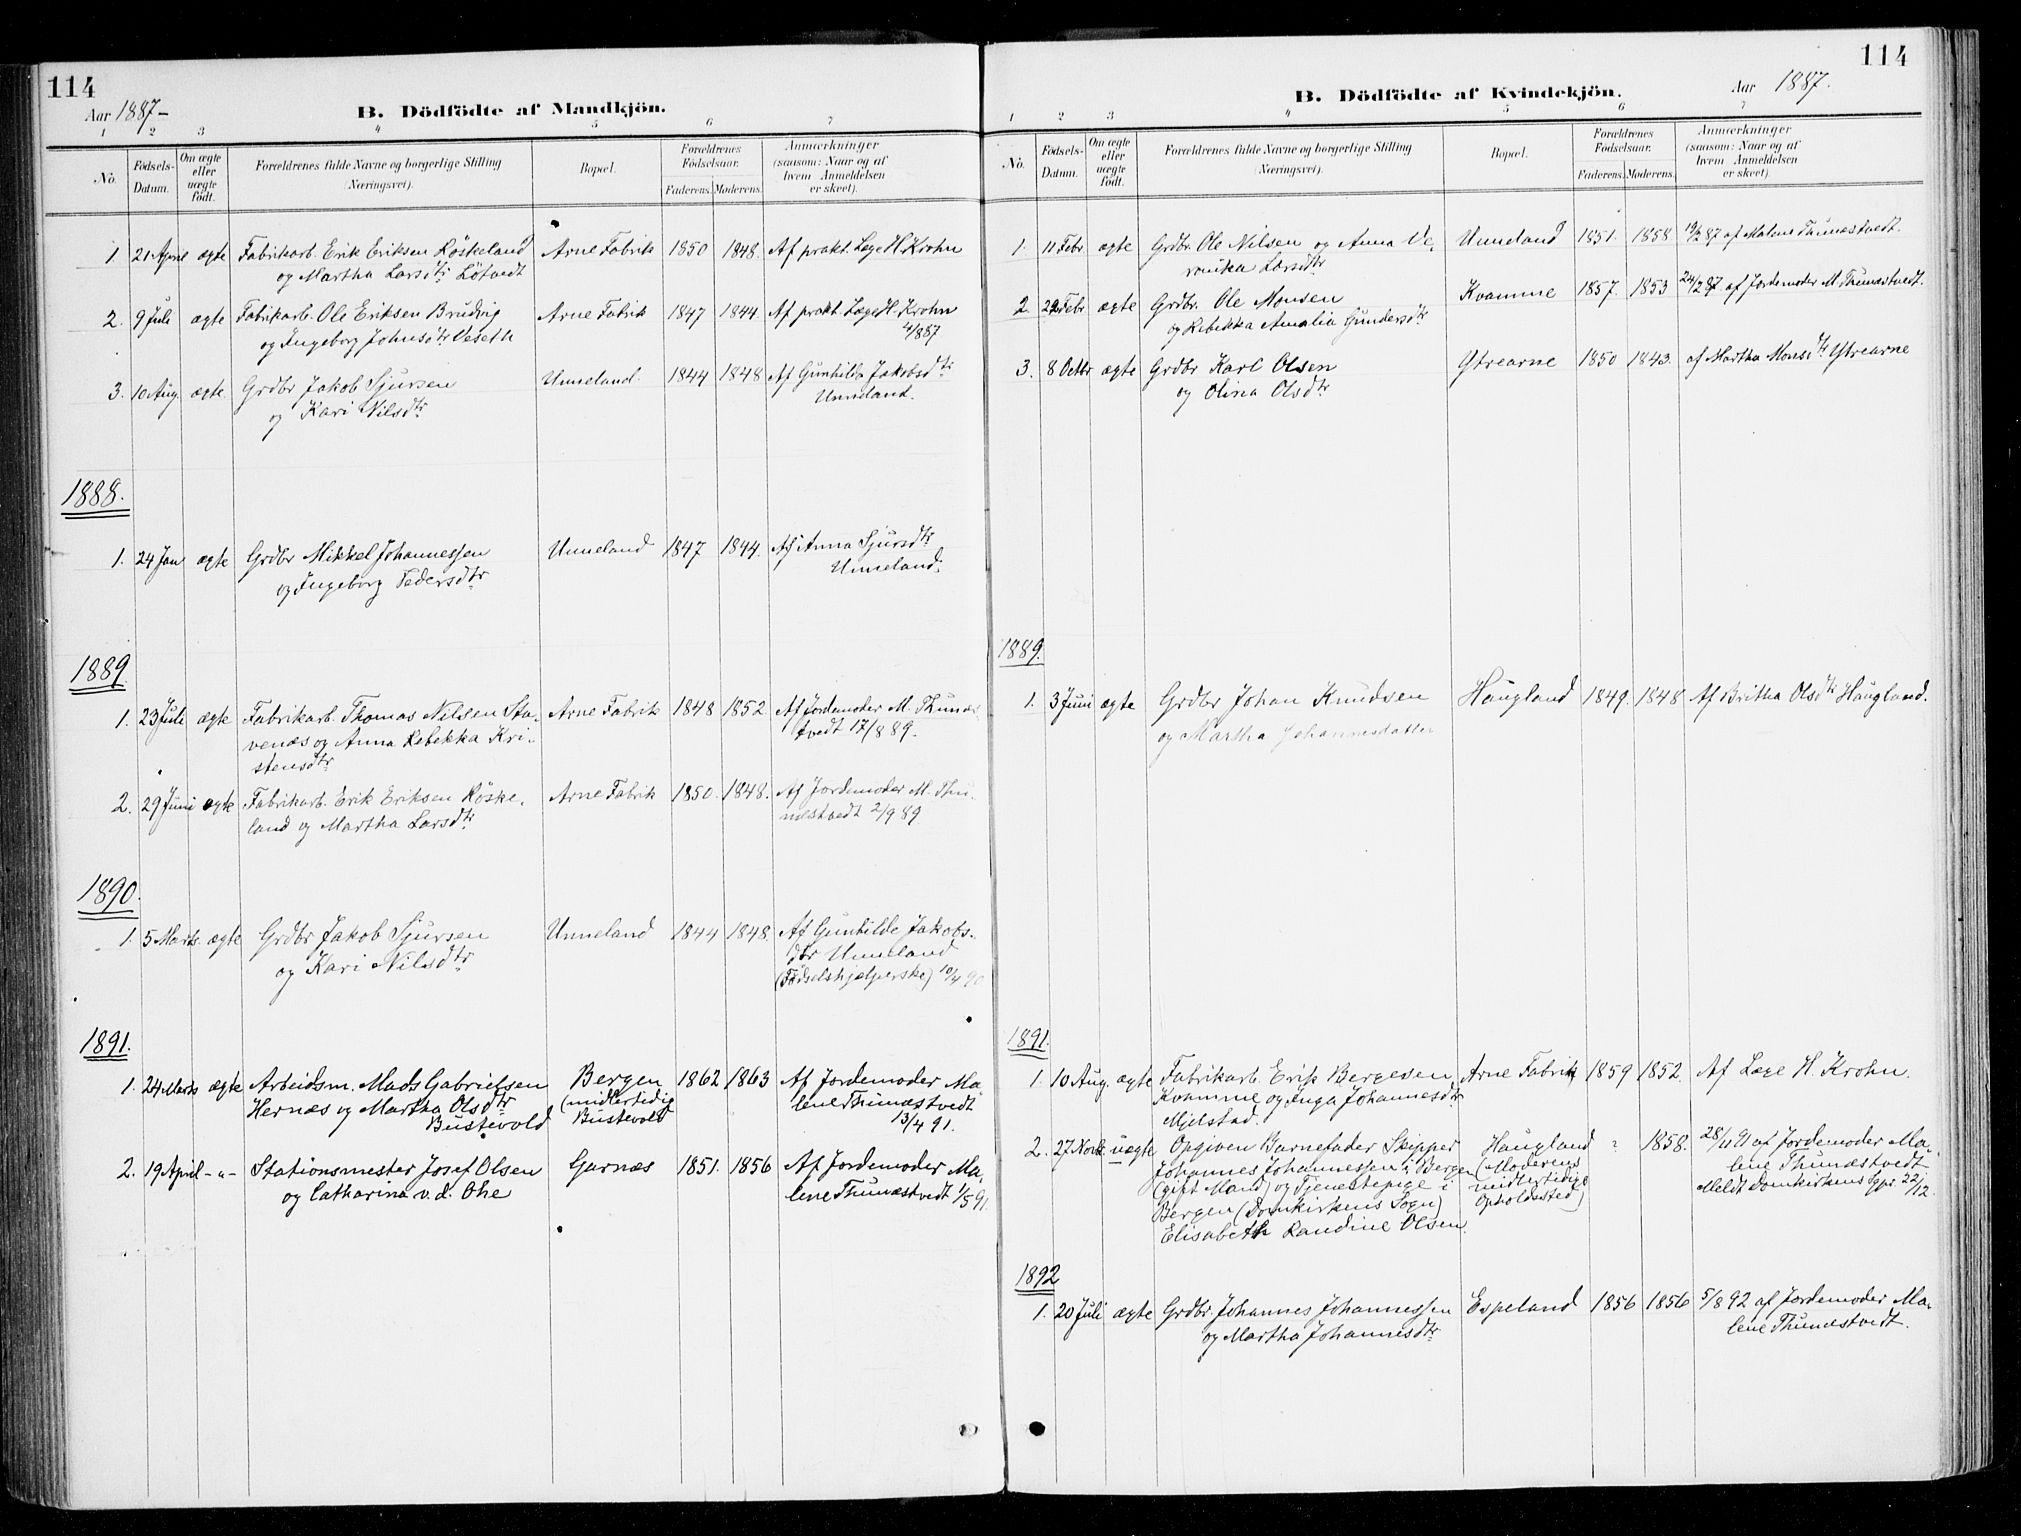 114
Aar 1887-
B. Dödfödte af Mandkjön.
1 2 3 4 5 6 7
No.
Födsels-Datum.
Om ægte eller uægte födt.
Forældrenes fulde Navne og borgerlige Stilling (Næringsvei).
Bopæl.
Forældrenes Födselsaar.
Faderens. Moderens.
Anmærkninger (saasom: Naar og af hvem Anmeldelsen er skeet).
1. 21 April ægte Fabrikarb. Erik Eriksen Röskeland Arne Fabrik 1850 1848. Af prakt. Læge H. Krohn
og Martha Larsdtr Lötvedt
2. 9 Juli ægte Fabrikarb. Ole Eriksen Brudvig Arne Fabrik 1847 1844. Af prakt. Læge H. Krohn
og Ingeborg Johnsdtr Veseth 4/887
3. 10 Aug. ægte. Grdbr Jakob Sjursen Unneland. 1844 1848 Af Gunhilde Jakobsdtr
og Kari Nilsdtr Unneland.
1888.
1. 24 Jan ægte Grdbr Mikkel Johannessen Unneland 1847 1844. Af Anna Sjursdtr
og Ingeborg Pedersdtr Unneland.
1889.
1. 23 Juli ægte Fabrikarb. Thomas Nilsen Sta- Arne Fabrik 1848 1852. Af Jordemoder M. Thunæs-
venæs og Anna Rebekka Kri- tvedt 17/8 89.
stensdtr
2. 29 Juni ægte Fabrikarb. Erik Eriksen Röske- Arne Fabrik 1850. 1848. Af Jordemoder M. Thu-
land og Martha Larsdtr næstvedt 2/9 89
1890.
1. 5 Marts. ægte Grdbr Jakob Sjursen Unneland 1844 1848. Af Gunhilde Jakobs-
og Kari Nilsdtr dtr Unneland
(Födselshjælperske) 10/4 90
1891.
1. 24 Marts ægte Arbeidsm. Mads Gabrielsen Bergen 1862 1863 Af Jordemoder Ma-
Hernæs og Martha Olsdtr (midlertidig lene Thunæstvedt
Bustevold Bustevold 13/4 91.
2. 19 April -"- Stationsmester Josef Olsen Garnæs 1851. 1856 Af Jordemoder Ma-
og Catharina v.d. Ohe lene Thunæstvedt 1/5 91
114
Aar 1887.
B. Dödfödte af Kvindekjön.
1 2 3 4 5 6 7
No.
Födsels-Datum.
Om ægte eller uægte födt.
Forældrenes fulde Navne og borgerlige Stilling (Næringsvei).
Bopæl.
Forældrenes Födselsaar.
Faderens. Moderens.
Anmærkninger (saasom: Naar og af hvem Anmeldelsen er skeet).
1. 11 Febr ægte Grdbr. Ole Nilsen og Anna Ve- Unneland 1851. 1858 87 af Malene Thunæstvedt.
ronika Larsdtr
2. 22 Febr ægte Grdbr. Ole Monsen Kvamme 1857. 1853 24/2 87 af Jordemoder M. Thunæstvedt.
og Rebekka Amalia Gundersdtr
3. 8 Octbr ægte Grdbr Karl Olsen Ytrearne 1850 1843. af Martha Monsdtr Ytrearne
og Olina Olsdtr
1889.
1. 3 Juni ægte Grdbr Johan Knudsen Haugland 1849. 1848 Af Britha Olsdtr Haugland.
og Martha Johannesdatter
1891.
1. 10 Aug. ægte Fabrikarb. Erik Bergesen Arne Fabrik 1859 1852. Af Læge H. Krohn.
Kvamme og Inga Johannesdtr
Mjelstad.
2. 27 Novbr. uægte Opgiven Barnefader Skipper Haugland " 1858. 28/11 91 af Jordemoder Ma-
Johannes Johannessen i Bergen (Moderens lene Thunæstvedt
(gift Mand) og Tjenestepige i midlertidige Meldt Domkirkens Spr. 22/12.
Bergen (Domkirkens Sogn) Opholdssted)
Elisabeth Randine Olsen.
1892
1. 20 Juli ægte Grdbr. Johannes Johannessen Espeland 1856 1856 5/8 92 af Jordemoder Ma-
og Martha Johannesdtr lene Thunæstvedt.